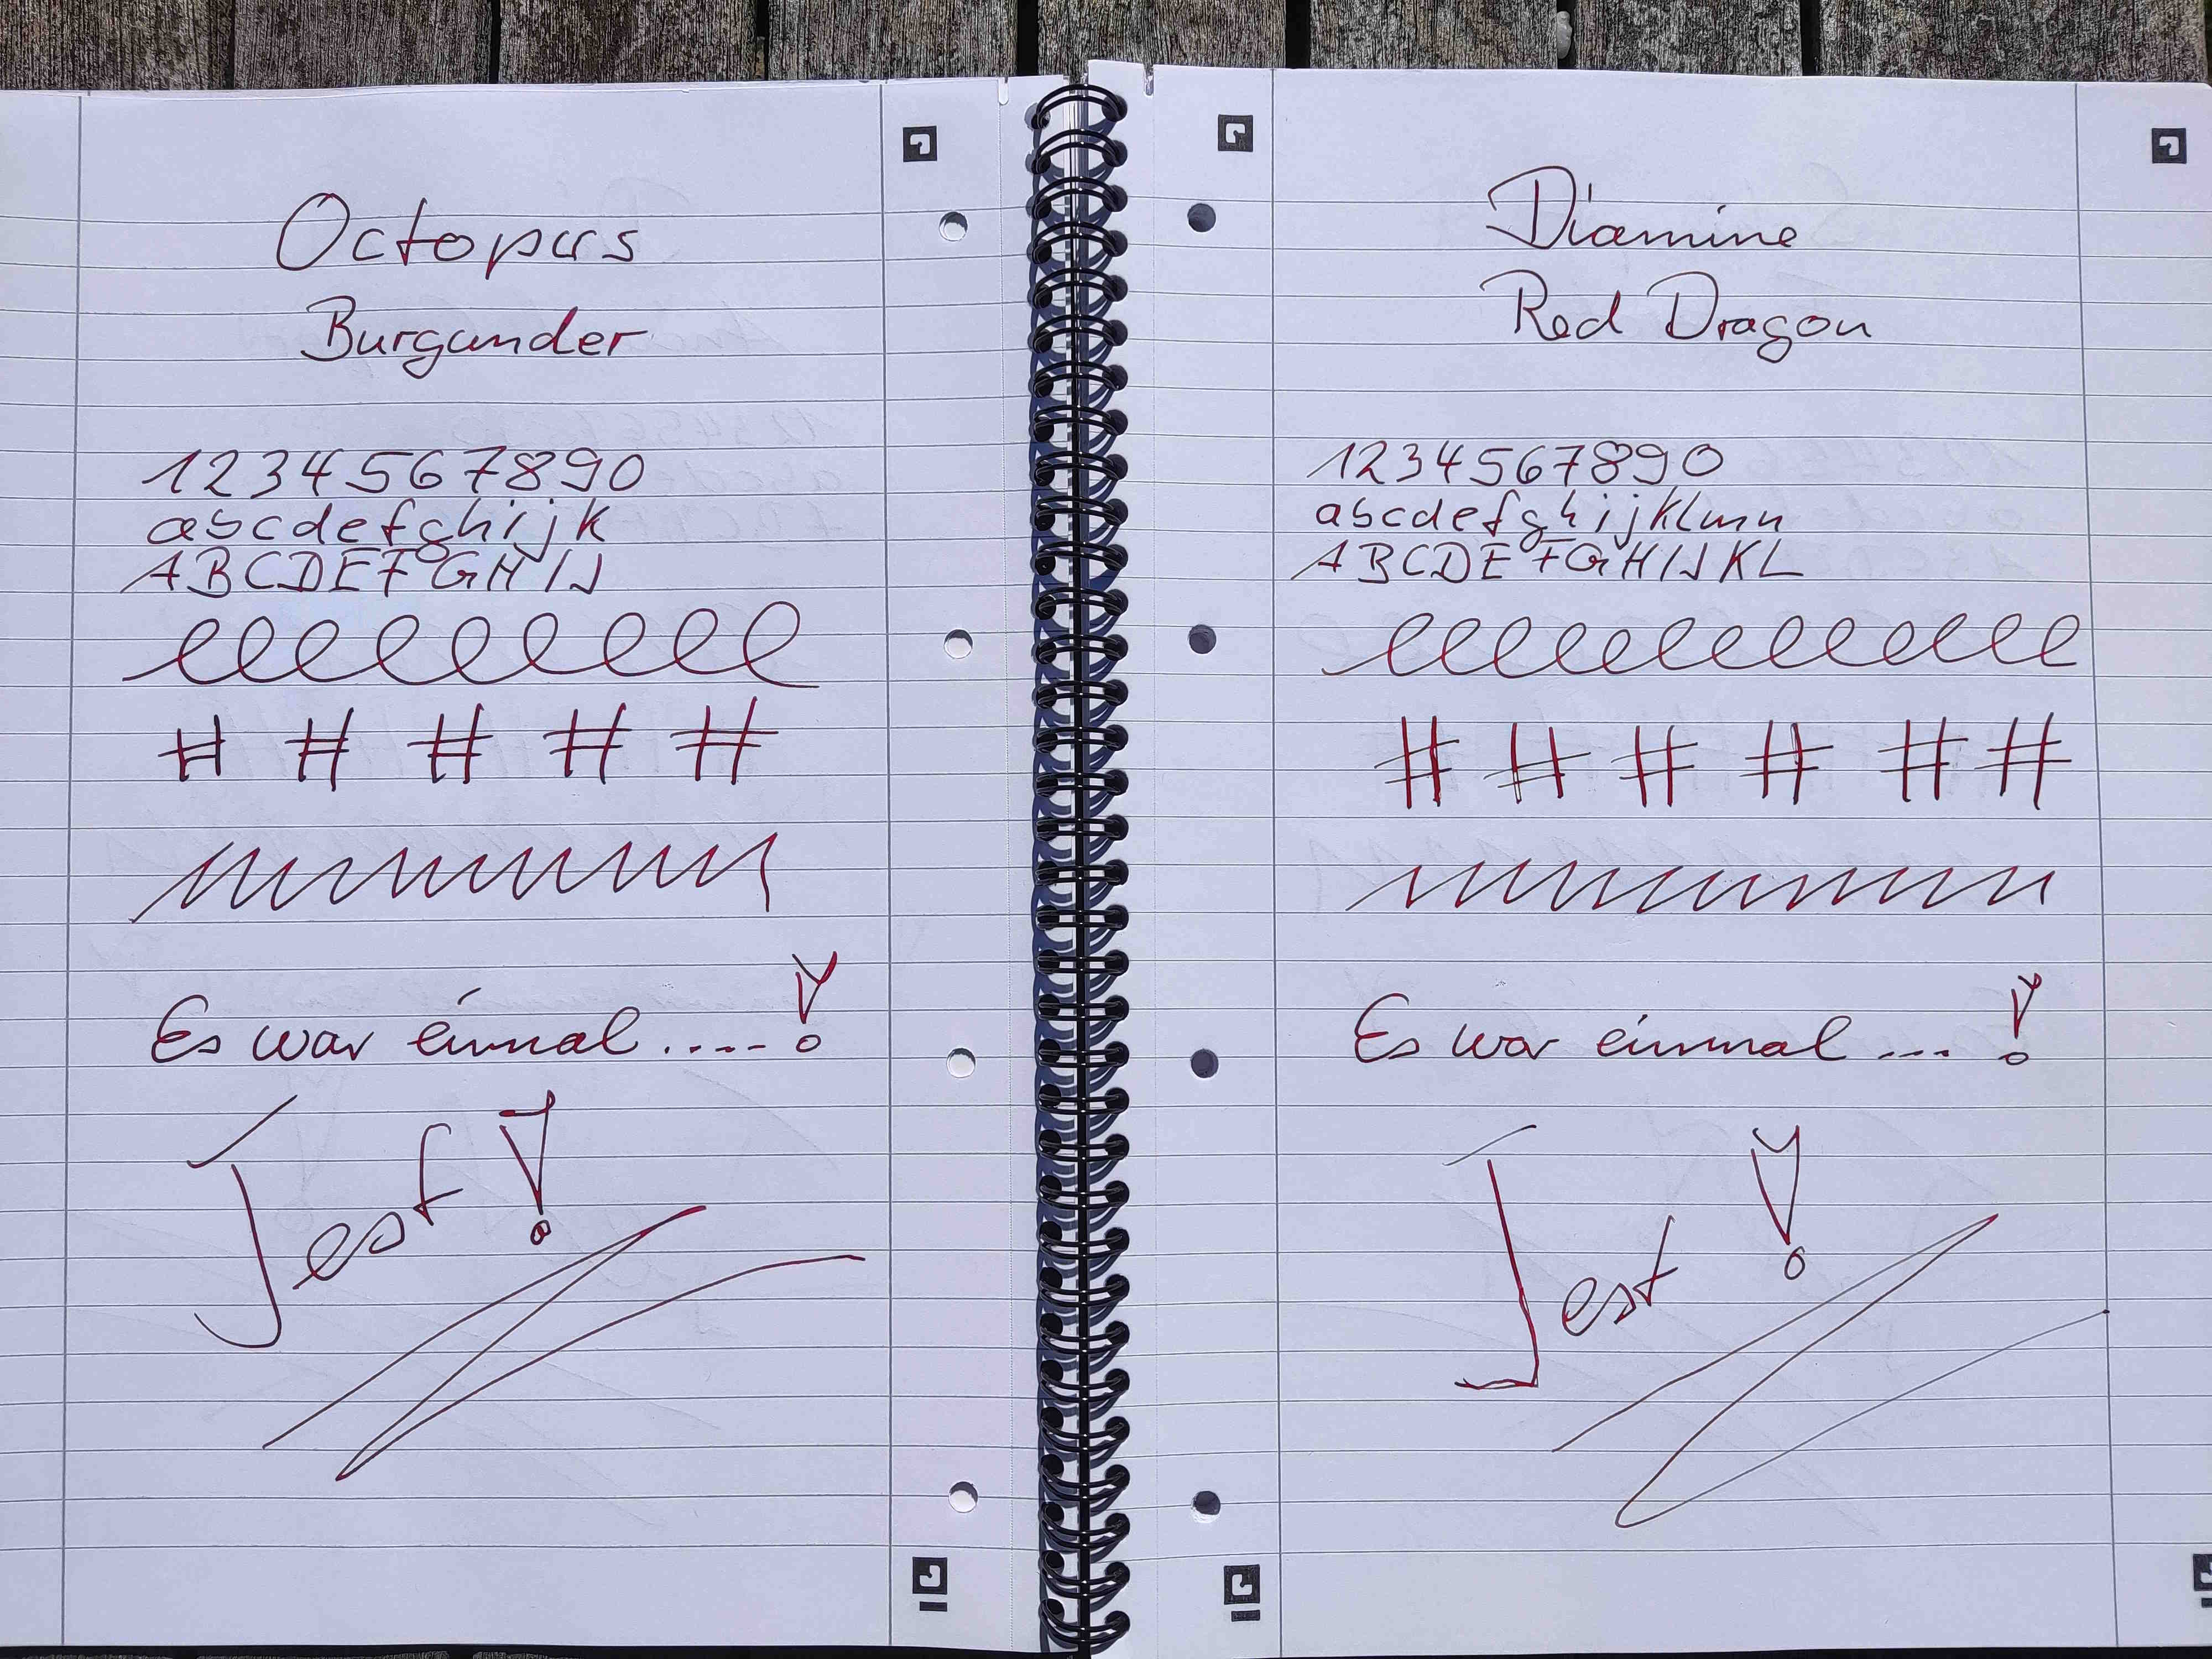 Octopus
Burgunder
1234567890
abcdefghijk
ABCDEFGHIJ
eeeeeeeee
# # # # #
Es war einmal....-!
Test!
Diamine
Red Dragon
1234567890
abcdefghijklmn
ABCDEFGHIJKL
eeeeeeeeeeeee
# # # # # #
Es war einmal...!
Test!